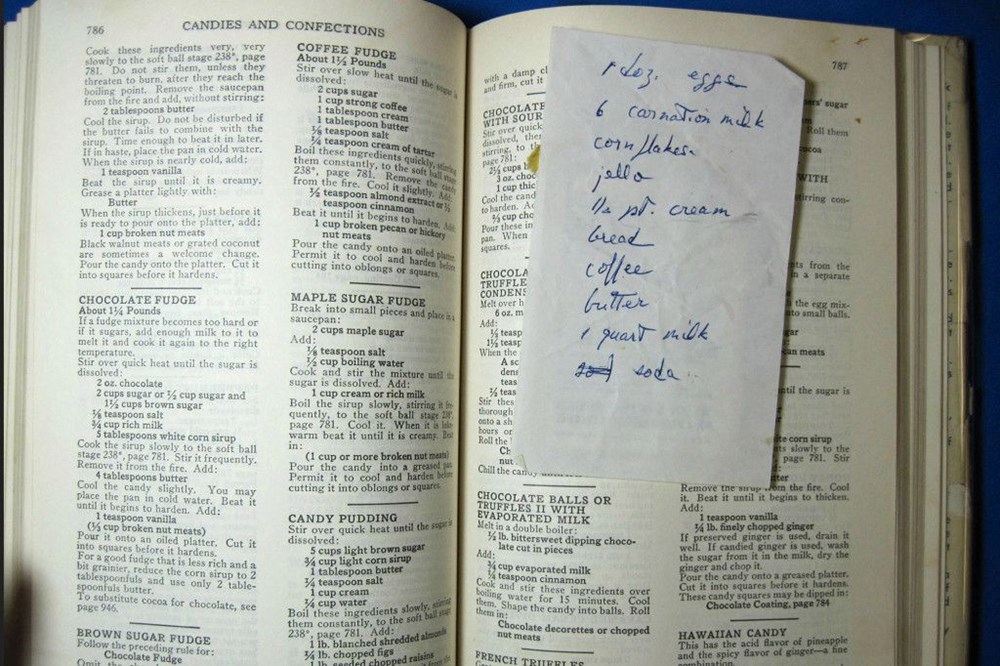 786 CANDIES AND CONFECTIONS
Cook these ingredients very, very
slowly to the soft ball stage 238°, page
781. Do not stir them, unless they
threaten to burn, after they reach the
boiling point. Remove the saucepan
from the fire and add, without stirring:
2 tablespoons butter
Cool the sirup. Do not be disturbed if
the butter fails to combine with the
sirup. Time enough to beat it in later.
If in haste, place the pan in cold water.
When the sirup is nearly cold, add:
1 teaspoon vanilla
Beat the sirup until it is creamy.
Grease a platter lightly with:
Butter
When the sirup thickens, just before it
is ready to pour onto the platter, add:
1 cup broken nut meats
Black walnut meats or grated coconut
are sometimes a welcome change.
Pour the candy onto the platter. Cut it
into squares before it hardens.
CHOCOLATE FUDGE
About 1¼ Pounds
If a fudge mixture becomes too hard or
if it sugars, add enough milk to it to
melt it and cook it again to the right
temperature.
Stir over quick heat until the sugar is
dissolved:
2 oz. chocolate
2 cups sugar or ½ cup sugar and
1½ cups brown sugar
⅛ teaspoon salt
¾ cup rich milk
5 tablespoons white corn sirup
Cook the sirup slowly to the soft ball
stage 238°, page 781. Stir it frequently.
Remove it from the fire. Add:
4 tablespoons butter
Cool the candy slightly. You may
place the pan in cold water. Beat it
until it begins to harden. Add:
1 teaspoon vanilla
(⅓ cup broken nut meats)
Pour it onto an oiled platter. Cut it
into squares before it hardens.
For a good fudge that is less rich and a
bit grainier, reduce the corn sirup to 2
tablespoonfuls and use only 2 table-
spoonfuls butter.
To substitute cocoa for chocolate, see
page 946.
BROWN SUGAR FUDGE
Follow the preceding rule for:
Chocolate Fudge
Omit the
COFFEE FUDGE
About 1½ Pounds
Stir over slow heat until the sugar is
dissolved:
2 cups sugar
1 cup strong coffee
1 tablespoon cream
1 tablespoon butter
⅛ teaspoon salt
¼ teaspoon cream of tartar
Boil these ingredients quickly, stirring
them constantly, to the soft ball stage
238°, page 781. Remove the candy
from the fire. Cool it slightly. Add:
½ teaspoon almond extract or ½
teaspoon cinnamon
Beat it until it begins to harden. Add:
1 cup broken pecan or hickory
nut meats
Pour the candy onto an oiled platter.
Permit it to cool and harden before
cutting into oblongs or squares.
MAPLE SUGAR FUDGE
Break into small pieces and place in a
saucepan:
2 cups maple sugar
Add:
⅛ teaspoon salt
½ cup boiling water
Cook and stir the mixture until the
sugar is dissolved. Add:
1 cup cream or rich milk
Boil the sirup slowly, stirring it fre-
quently, to the soft ball stage 238°,
page 781. Cool it. When it is luke-
warm beat it until it is creamy. Beat
in:
(1 cup or more broken nut meats)
Pour the candy into a greased pan.
Permit it to cool and harden before
cutting it into oblongs or squares.
CANDY PUDDING
Stir over quick heat until the sugar is
dissolved:
5 cups light brown sugar
¾ cup light corn sirup
1 tablespoon butter
¼ teaspoon salt
1 cup cream
¾ cup water
Boil these ingredients slowly, stirring
them constantly, to the soft ball stage
238°, page 781. Add:
1 lb. blanched shredded almonds
¾ lb. chopped figs
1 lb. seeded chopped raisins
787
with a damp cl
and firm, cut it
CHOCOLATE
WITH SOUR
Stir over quick
dissolved, then
stirring, to th
page 781:
2½ cups
3 oz. choc
1 cup thic
Cool the cand
to harden.
½ cup cho
Pour these in
pan. When
squares.
CHOCOLA
TRUFFLE
CONDENS
Melt over h
6 oz. m
Add:
When the
Stir thes
thorough
onto a sh
hours or
Roll the
Chill the candy
1 doz. eggs
6 carnation milk
cornflakes.
jello
½ pt. cream
bread
coffee
butter
1 quart milk
soda
CHOCOLATE BALLS OR
TRUFFLES II WITH
EVAPORATED MILK
Melt in a double boiler:
½ lb. bittersweet dipping choco-
late cut in pieces
Add:
¾ cup evaporated milk
¼ teaspoon cinnamon
Cook and stir these ingredients over
boiling water for 15 minutes. Cool
them. Shape the candy into balls. Roll
them in:
Chocolate decorettes or chopped
nut meats
FRENCH TRUFFLES
ers' sugar
Roll them
cocoa
WITH
stirring con-
nts from the
in a separate
the egg mix-
to small balls.
gar
can meats
til the sugar is
te corn sirup
ts slowly to the
page 781. Stir
tter
Remove the sirup from the fire. Cool
it. Beat it until it begins to thicken.
Add:
1 teaspoon vanilla
¼ lb. finely chopped ginger
If preserved ginger is used, drain it
well. If candied ginger is used, wash
the sugar from it in the milk, dry the
ginger and chop it.
Pour the candy onto a greased platter.
Cut it into squares before it hardens.
These candy squares may be dipped in:
Chocolate Coating, page 784
HAWAIIAN CANDY
This has the acid flavor of pineapple
and the spicy flavor of ginger—a fine
combination.